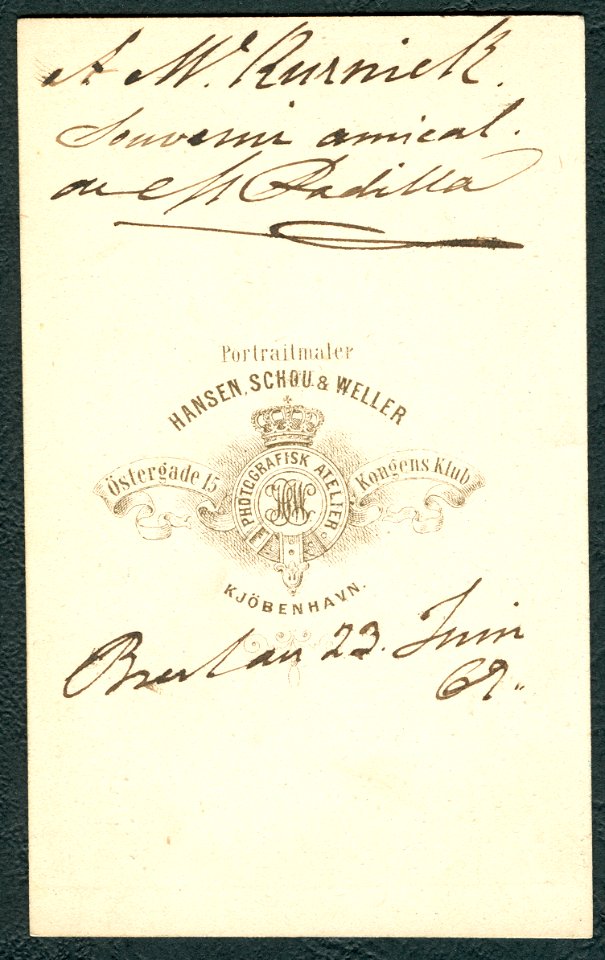 A Mr. Kurnick.
Souvenir amical.
de M Padilla
Portraitmaler
HANSEN, SCHOU & WELLER
Östergade 15
PHOTOGRAFISK ATELIER
Kongens Klub
HSW
KJÖBENHAVN.
Breslau 23. Juin
69.